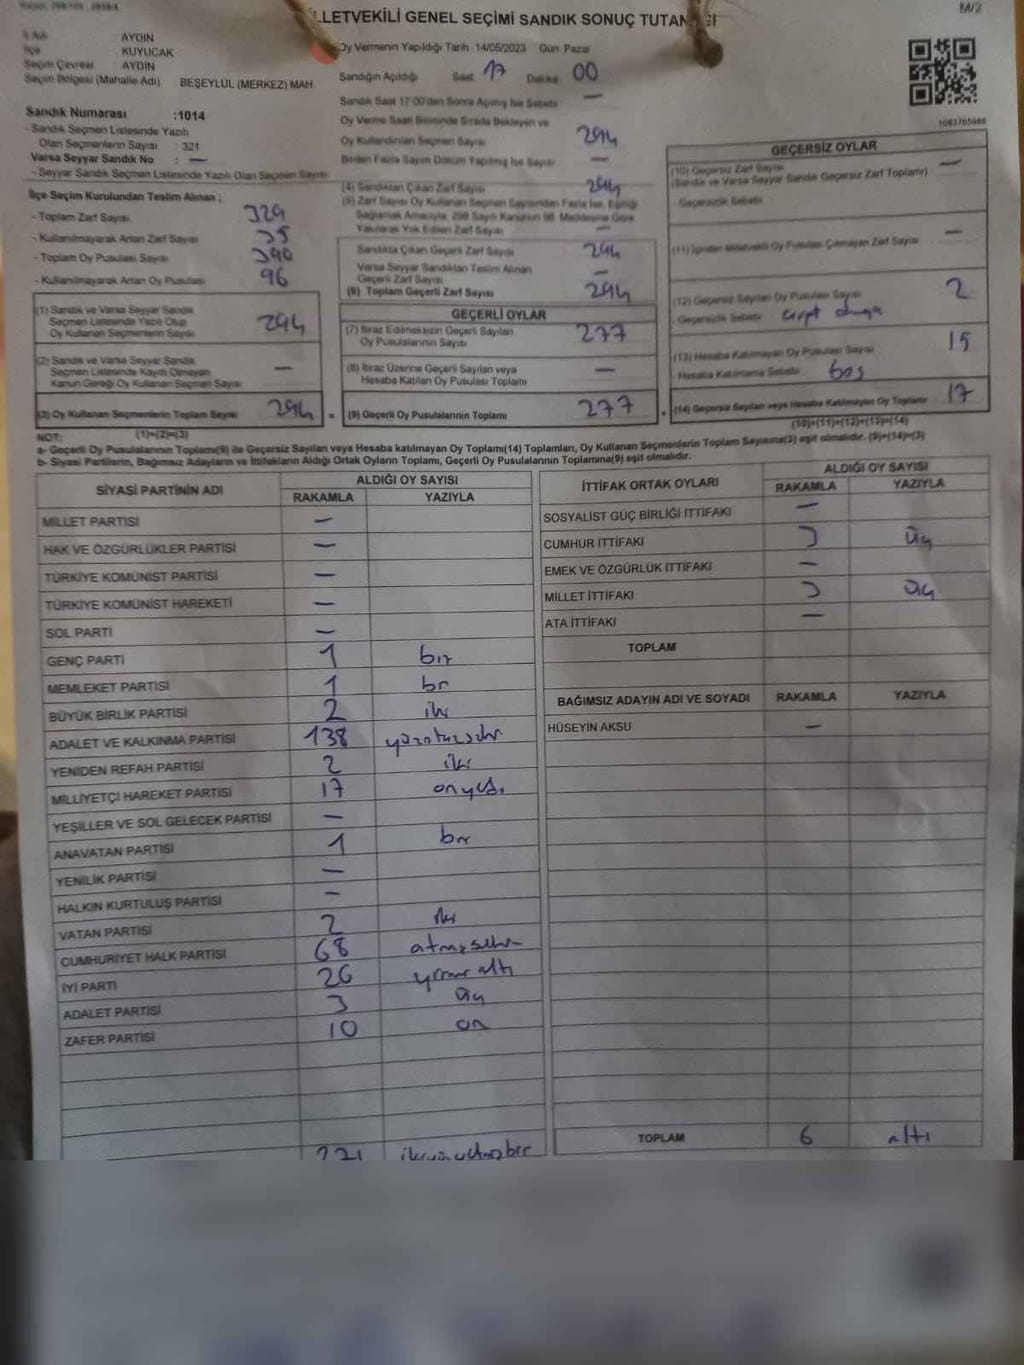 LLETVEKİLİ GENEL SEÇİMİ SANDIK SONUÇ TUTANAĞI
M/2
İl Adı AYDIN
İlçe KUYUCAK
Seçim Çevresi AYDIN
Seçim Bölgesi (Mahalle Adı) BEŞEYLÜL (MERKEZ) MAH
Oy Vermenin Yapıldığı Tarih 14/05/2023 Gün Pazar
Sandığın Açıldığı Saat 17 Dakika 00
Sandık Saat 17:00'den Sonra Açılmış İse Sebebi —
Oy Verme Saati Bitiminde Sırada Bekleyen ve
Oy Kullandırılan Seçmen Sayısı 294
Birden Fazla Sayım Döküm Yapılmış İse Sayısı —
1083765988
Sandık Numarası :1014
- Sandık Seçmen Listesinde Yazılı
Olan Seçmenlerin Sayısı : 321
Varsa Seyyar Sandık No : —
- Seyyar Sandık Seçmen Listesinde Yazılı Olan Seçmen Sayısı
İlçe Seçim Kurulundan Teslim Alınan ;
- Toplam Zarf Sayısı 329
- Kullanılmayarak Artan Zarf Sayısı 35
- Toplam Oy Pusulası Sayısı 390
- Kullanılmayarak Artan Oy Pusulası 96
(1) Sandık ve Varsa Seyyar Sandık
Seçmen Listesinde Yazılı Olup
Oy Kullanan Seçmenlerin Sayısı 294
(2) Sandık ve Varsa Seyyar Sandık
Seçmen Listesinde Kayıtlı Olmayan
Kanun Gereği Oy Kullanan Seçmen Sayısı —
(3) Oy Kullanan Seçmenlerin Toplam Sayısı 294
(1)+(2)=(3)
(4) Sandıktan Çıkan Zarf Sayısı 294
(5) Zarf Sayısı Oy Kullanan Seçmen Sayısından Fazla İse, Eşitliği
Sağlamak Amacıyla, 298 Sayılı Kanunun 98. Maddesine Göre
Yakılarak Yok Edilen Zarf Sayısı —
Sandıkta Çıkan Geçerli Zarf Sayısı 294
Varsa Seyyar Sandıktan Teslim Alınan
Geçerli Zarf Sayısı —
(6) Toplam Geçerli Zarf Sayısı 294
GEÇERLİ OYLAR
(7) İtiraz Edilmeksizin Geçerli Sayılan
Oy Pusulalarının Sayısı 277
(8) İtiraz Üzerine Geçerli Sayılan veya
Hesaba Katılan Oy Pusulası Toplamı —
= (9) Geçerli Oy Pusulalarının Toplamı 277
GEÇERSİZ OYLAR
(10) Geçersiz Zarf Sayısı —
(Sandık ve Varsa Seyyar Sandık Geçersiz Zarf Toplamı)
- Geçersizlik Sebebi
(11) İçinden Milletvekili Oy Pusulası Çıkmayan Zarf Sayısı —
(12) Geçersiz Sayılan Oy Pusulası Sayısı 2
- Geçersizlik Sebebi
(13) Hesaba Katılmayan Oy Pusulası Sayısı 15
- Hesaba Katılmama Sebebi boş
+ (14) Geçersiz Sayılan veya Hesaba Katılmayan Oy Toplamı 17
(10)+(11)+(12)+(13)=(14)
NOT:
a- Geçerli Oy Pusulalarının Toplamı(9) ile Geçersiz Sayılan veya Hesaba katılmayan Oy Toplamı(14) Toplamları, Oy Kullanan Seçmenlerin Toplam Sayısına(3) eşit olmalıdır. (9)+(14)=(3)
b- Siyasi Partilerin, Bağımsız Adayların ve İttifakların Aldığı Ortak Oyların Toplamı, Geçerli Oy Pusulalarının Toplamına(9) eşit olmalıdır.
SİYASİ PARTİNİN ADI ALDIĞI OY SAYISI
RAKAMLA YAZIYLA
MİLLET PARTİSİ —
HAK VE ÖZGÜRLÜKLER PARTİSİ —
TÜRKİYE KOMÜNİST PARTİSİ —
TÜRKİYE KOMÜNİST HAREKETİ —
SOL PARTİ —
GENÇ PARTİ 1 bir
MEMLEKET PARTİSİ 1 bir
BÜYÜK BİRLİK PARTİSİ 2 iki
ADALET VE KALKINMA PARTİSİ 138 yüzotuzsekiz
YENİDEN REFAH PARTİSİ 2 iki
MİLLİYETÇİ HAREKET PARTİSİ 17 onyedi
YEŞİLLER VE SOL GELECEK PARTİSİ —
ANAVATAN PARTİSİ 1 bir
YENİLİK PARTİSİ —
HALKIN KURTULUŞ PARTİSİ —
VATAN PARTİSİ 2 iki
CUMHURİYET HALK PARTİSİ 68 atmışsekiz
İYİ PARTİ 26 yirmi altı
ADALET PARTİSİ 3 üç
ZAFER PARTİSİ 10 on
271 ikiyüzyetmişbir
İTTİFAK ORTAK OYLARI ALDIĞI OY SAYISI
RAKAMLA YAZIYLA
SOSYALİST GÜÇ BİRLİĞİ İTTİFAKI —
CUMHUR İTTİFAKI 3 üç
EMEK VE ÖZGÜRLÜK İTTİFAKI —
MİLLET İTTİFAKI 3 üç
ATA İTTİFAKI —
TOPLAM
BAĞIMSIZ ADAYIN ADI VE SOYADI RAKAMLA YAZIYLA
HÜSEYİN AKSU —
TOPLAM 6 altı